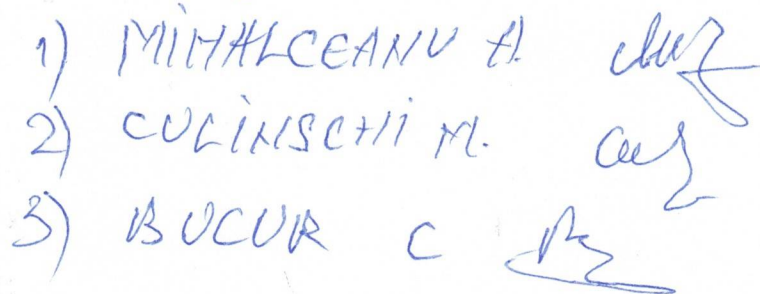 1) MIHALCEANU A.
2) CULINSCHI M.
3) BUCUR C